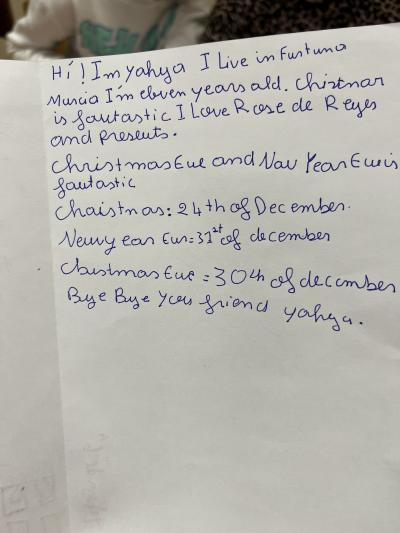 Hi! Im yahya I Live in Fortuna
Murcia I'm eleven years old. Chistmar
is fautastic I Love Rose de Reyes
and presents.
Christmas Eue and Nau Year Eue is
fautastic
Chaistnas: 24th of December.
Newyear Eur=31st of december
Chistmas Eue = 30th of december
Bye Bye your friend yahya.